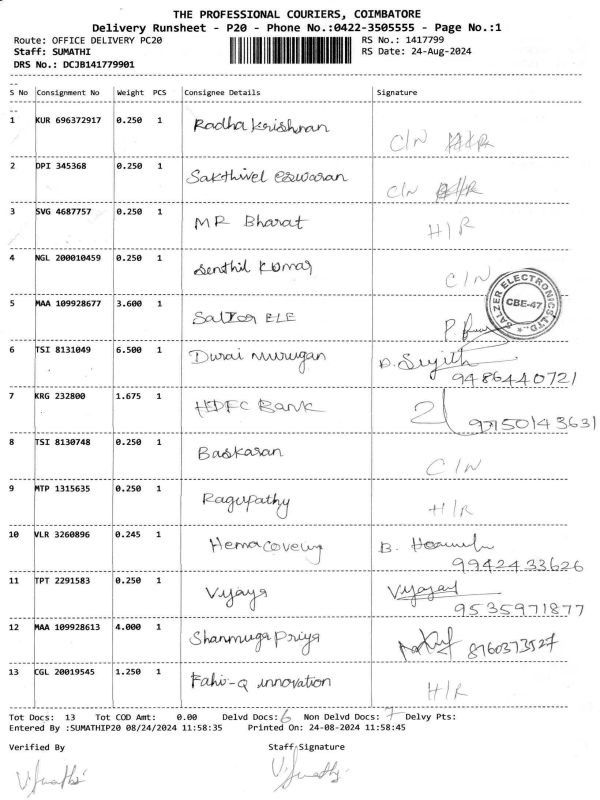 THE PROFESSIONAL COURIERS, COIMBATORE
Delivery Runsheet - P20 - Phone No.:0422-3505555 - Page No.:1
Route: OFFICE DELIVERY PC20 RS No.: 1417799
Staff: SUMATHI RS Date: 24-Aug-2024
DRS No.: DCJB141779901
S No Consignment No Weight PCS Consignee Details Signature
1 KUR 696372917 0.250 1 Radha Krishnan C/N
2 DPI 345368 0.250 1 Sakthivel eswaran C/N
3 SVG 4687757 0.250 1 MR Bharat H/R
4 NGL 200010459 0.250 1 Senthil Kumar C/N
SALZER ELECTRONICS LTD.
CBE-47
5 MAA 109928677 3.600 1 Salzer ELE
6 TSI 8131049 6.500 1 Durai murugan D. Sujith
9486440721
7 KRG 232800 1.675 1 HDFC Bank
9715014 3631
8 TSI 8130748 0.250 1 Baskaran C/N
9 MTP 1315635 0.250 1 Ragupathy H/R
10 VLR 3260896 0.245 1 B.
9942433626
11 TPT 2291583 0.250 1 Vijaya
9535971877
12 MAA 109928613 4.000 1 Shanmuga Priya 8760373527
13 CGL 20019545 1.250 1 Fahi-Q innovation H/R
Tot Docs: 13 Tot COD Amt: 0.00 Delvd Docs: 6 Non Delvd Docs: 7 Delvy Pts:
Entered By :SUMATHIP20 08/24/2024 11:58:35 Printed On: 24-08-2024 11:58:45
Verified By Staff Signature
V. Sumathi V. Sumathy